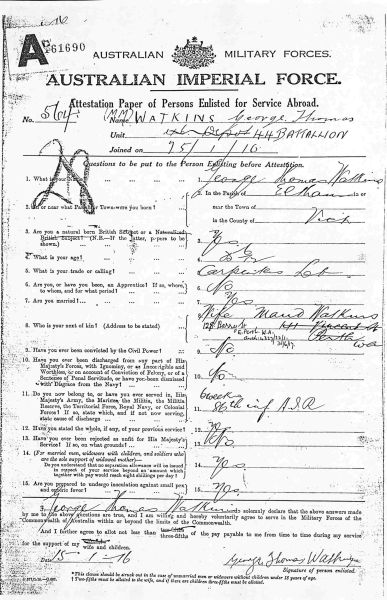 A
61690
AUSTRALIAN MILITARY FORCES.
AUSTRALIAN IMPERIAL FORCE.
Attestation Paper of Persons Enlisted for Service Abroad.
No. Name WATKINS George Thomas
Unit 44 BATTALION
Joined on 25/1/16
Questions to be put to the Person Enlisting before Attestation.
1. What is your Name? 1. George Thomas Watkins
2. In or near what Parish or Town were you born? 2. In the Parish of Eltham
near the Town of
in the County of Vict
3. Are you a natural born British Subject or a Naturalized
British Subject? (N.B.—If the latter, papers to be
shown.) 3. Yes
4. What is your age? 4.
5. What is your trade or calling? 5. Carpenter
6. Are you, or have you been, an Apprentice? If so, where,
to whom, and for what period? 6. No
7. Are you married? 7. Yes
8. Who is your next of kin? (Address to be stated) 8. Wife Maud Watkins
Perth WA
9. Have you ever been convicted by the Civil Power? 9. No
10. Have you ever been discharged from any part of His
Majesty's Forces, with Ignominy, or as Incorrigible and
Worthless, or on account of Conviction of Felony, or of a
Sentence of Penal Servitude, or have you been dismissed
with Disgrace from the Navy? 10. No
11. Do you now belong to, or have you ever served in, His
Majesty's Army, the Marines, the Militia, the Militia
Reserve, the Territorial Force, Royal Navy, or Colonial
Forces? If so, state which, and if not now serving,
state cause of discharge 11. 6 week
12. Have you stated the whole, if any, of your previous service? 12.
13. Have you ever been rejected as unfit for His Majesty's
Service? If so, on what grounds? 13. No
14. (For married men, widowers with children, and soldiers who
are the sole support of widowed mother)—
Do you understand that no separation allowance will be issued
in respect of your service beyond an amount which
together with pay would reach eight shillings per day? 14. Yes
15. Are you prepared to undergo inoculation against small pox
and enteric fever? 15. Yes
I, George Thomas Watkins do solemnly declare that the above answers made
by me to the above questions are true, and I am willing and hereby voluntarily agree to serve in the Military Forces of the
Commonwealth of Australia within or beyond the limits of the Commonwealth.
And I further agree to allot not less than three-fifths of the pay payable to me from time to time during my service
for the support of my wife and children.
Date 15-1-16 George Thomas Watkins
Signature of person enlisted.
*This clause should be struck out in the case of unmarried men or widowers without children under 18 years of age.
† Two-fifths must be allotted to the wife, and if there are children three-fifths must be allotted.